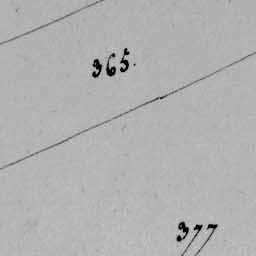 365.
377